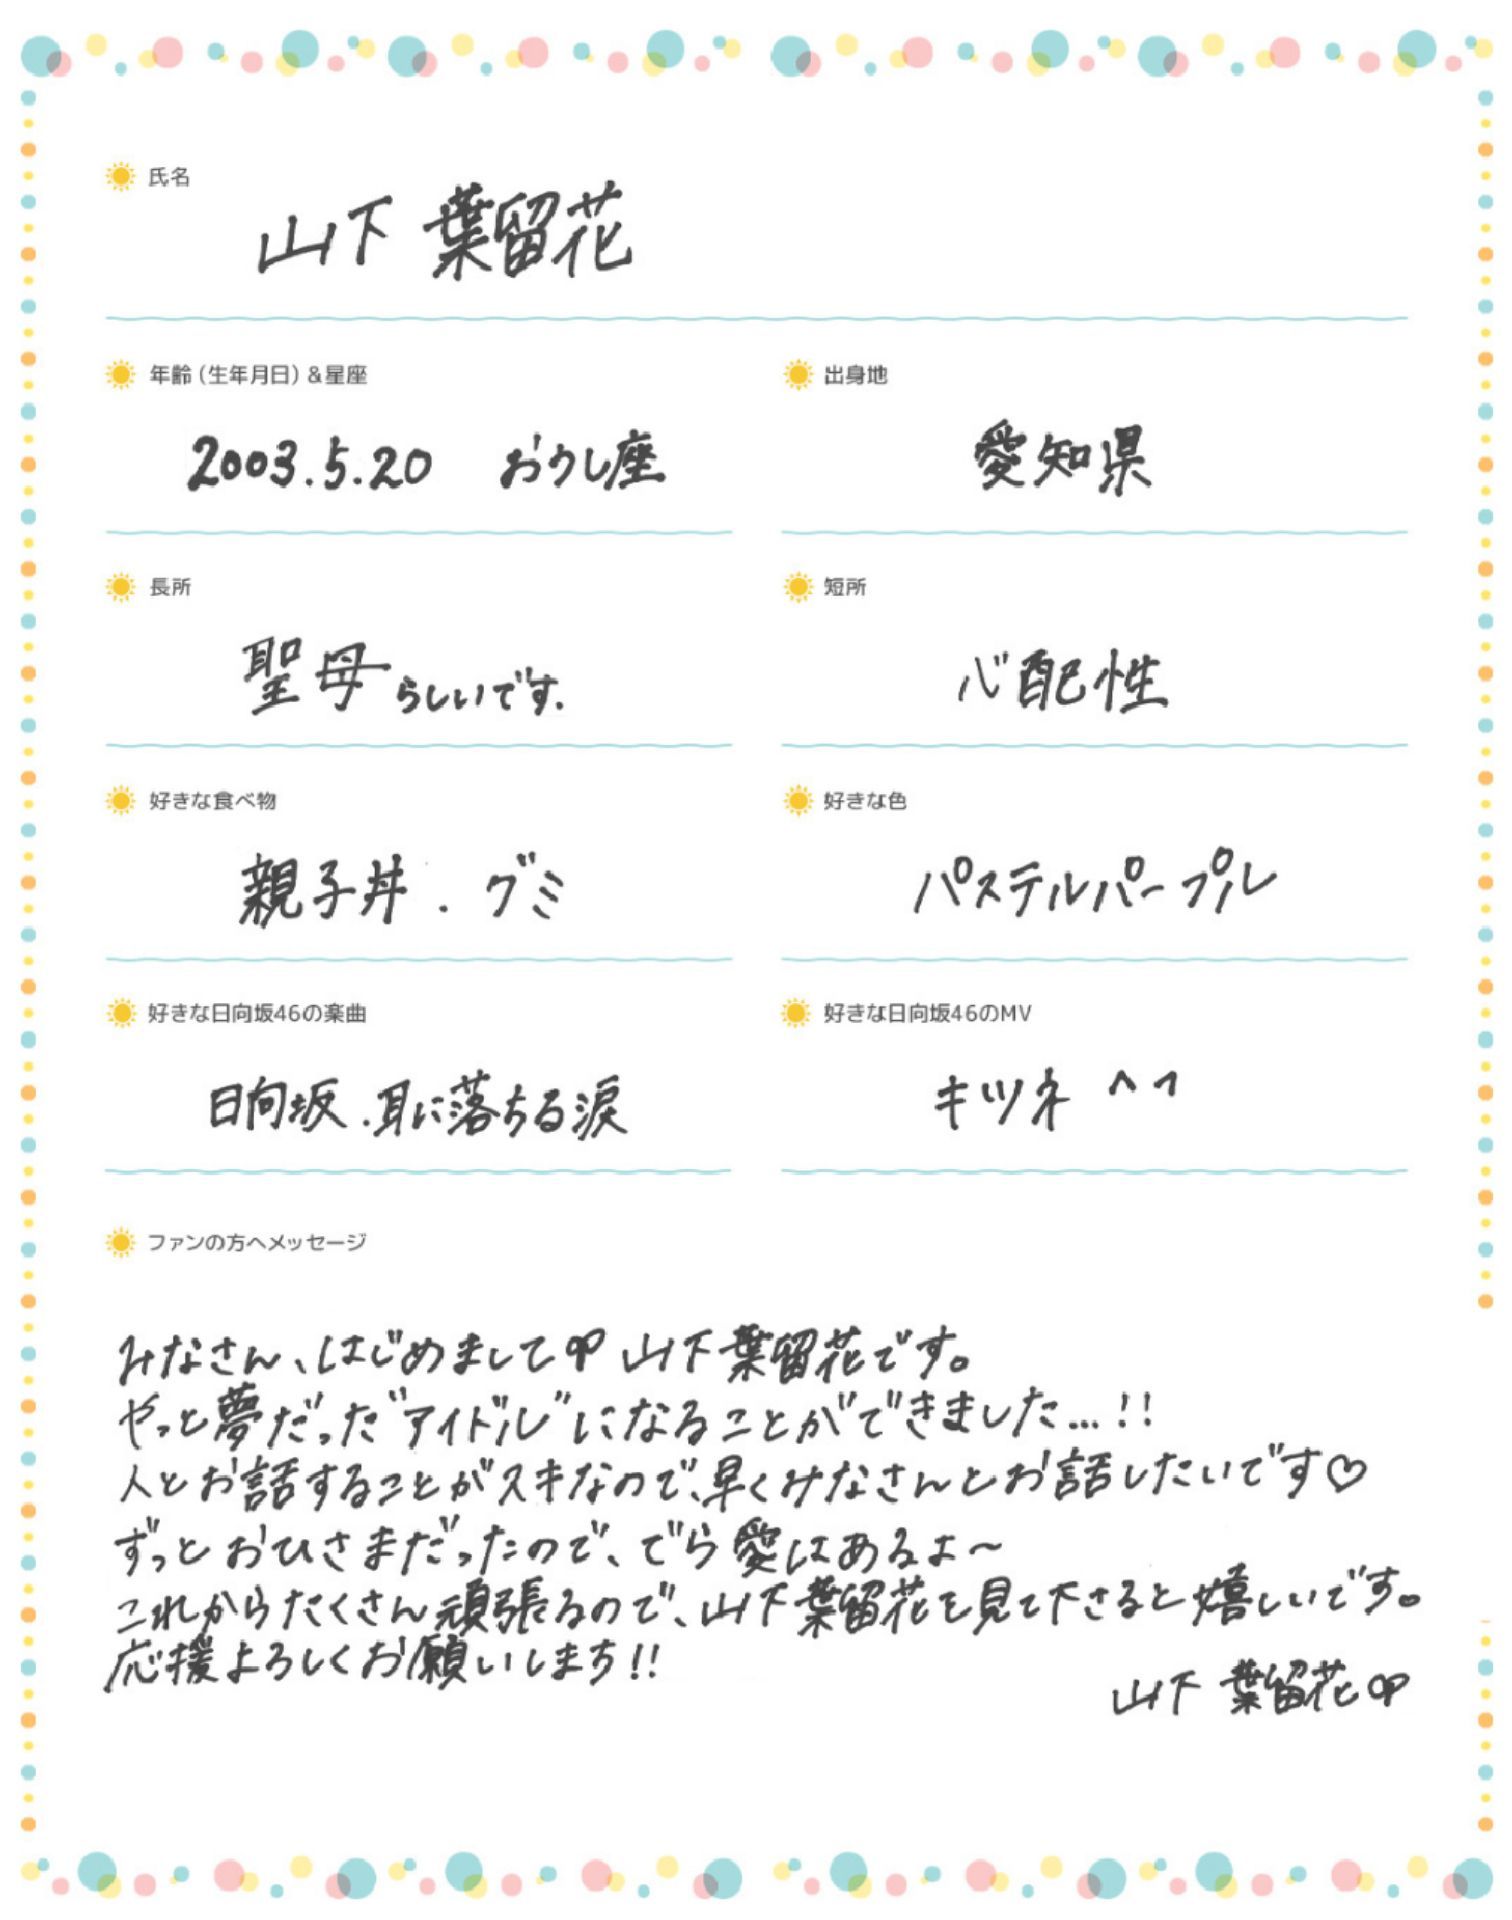 氏名
山下 葉留花
年齢(生年月日)&星座
2003.5.20 おうし座
出身地
愛知県
長所
聖母らしいです.
短所
心配性
好きな食べ物
親子丼. グミ
好きな色
パステルパープル
好きな日向坂46の楽曲
日向坂.耳に落ちる涙
好きな日向坂46のMV
キツネ ^^
ファンの方へメッセージ
みなさん、はじめまして 山下葉留花です。
やっと夢だった"アイドル"になることができました...!!
人とお話することがスキなので、早くみなさんとお話したいです♡
ずっとおひさまだったので、でら愛はあるよ〜
これからたくさん頑張るので、山下葉留花を見て下さると嬉しいです。
応援よろしくお願いします!!
山下 葉留花